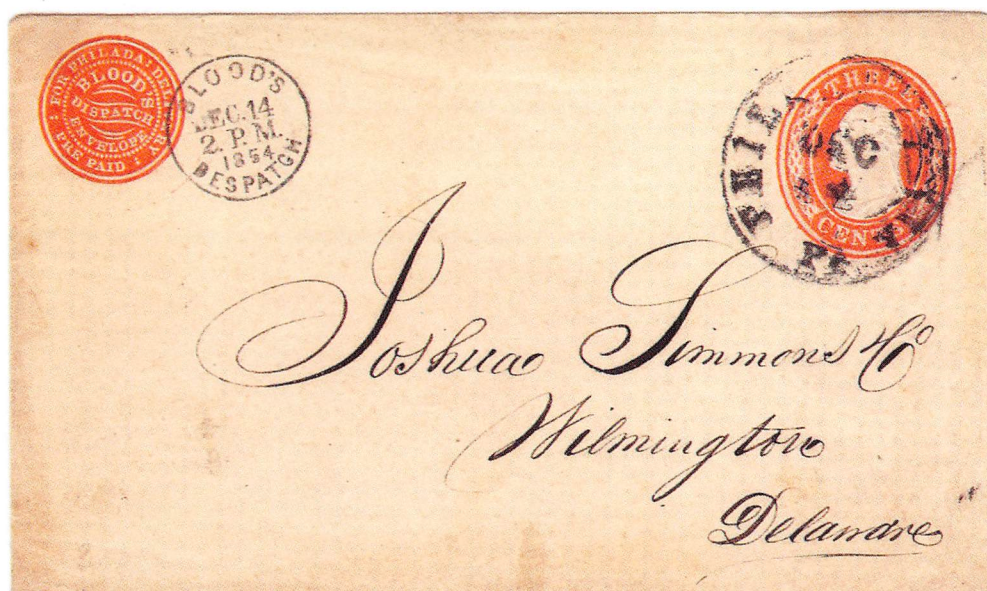 FOR PHILADA. DELIVERY
BLOOD'S
DISPATCH
ENVELOPE
PRE PAID
BLOOD'S
DEC. 14
2. P. M.
1854
DESPATCH
THREE
CENTS
PHILA
DEC
Pa
Joshua Simmons & Co
Wilmington
Delaware